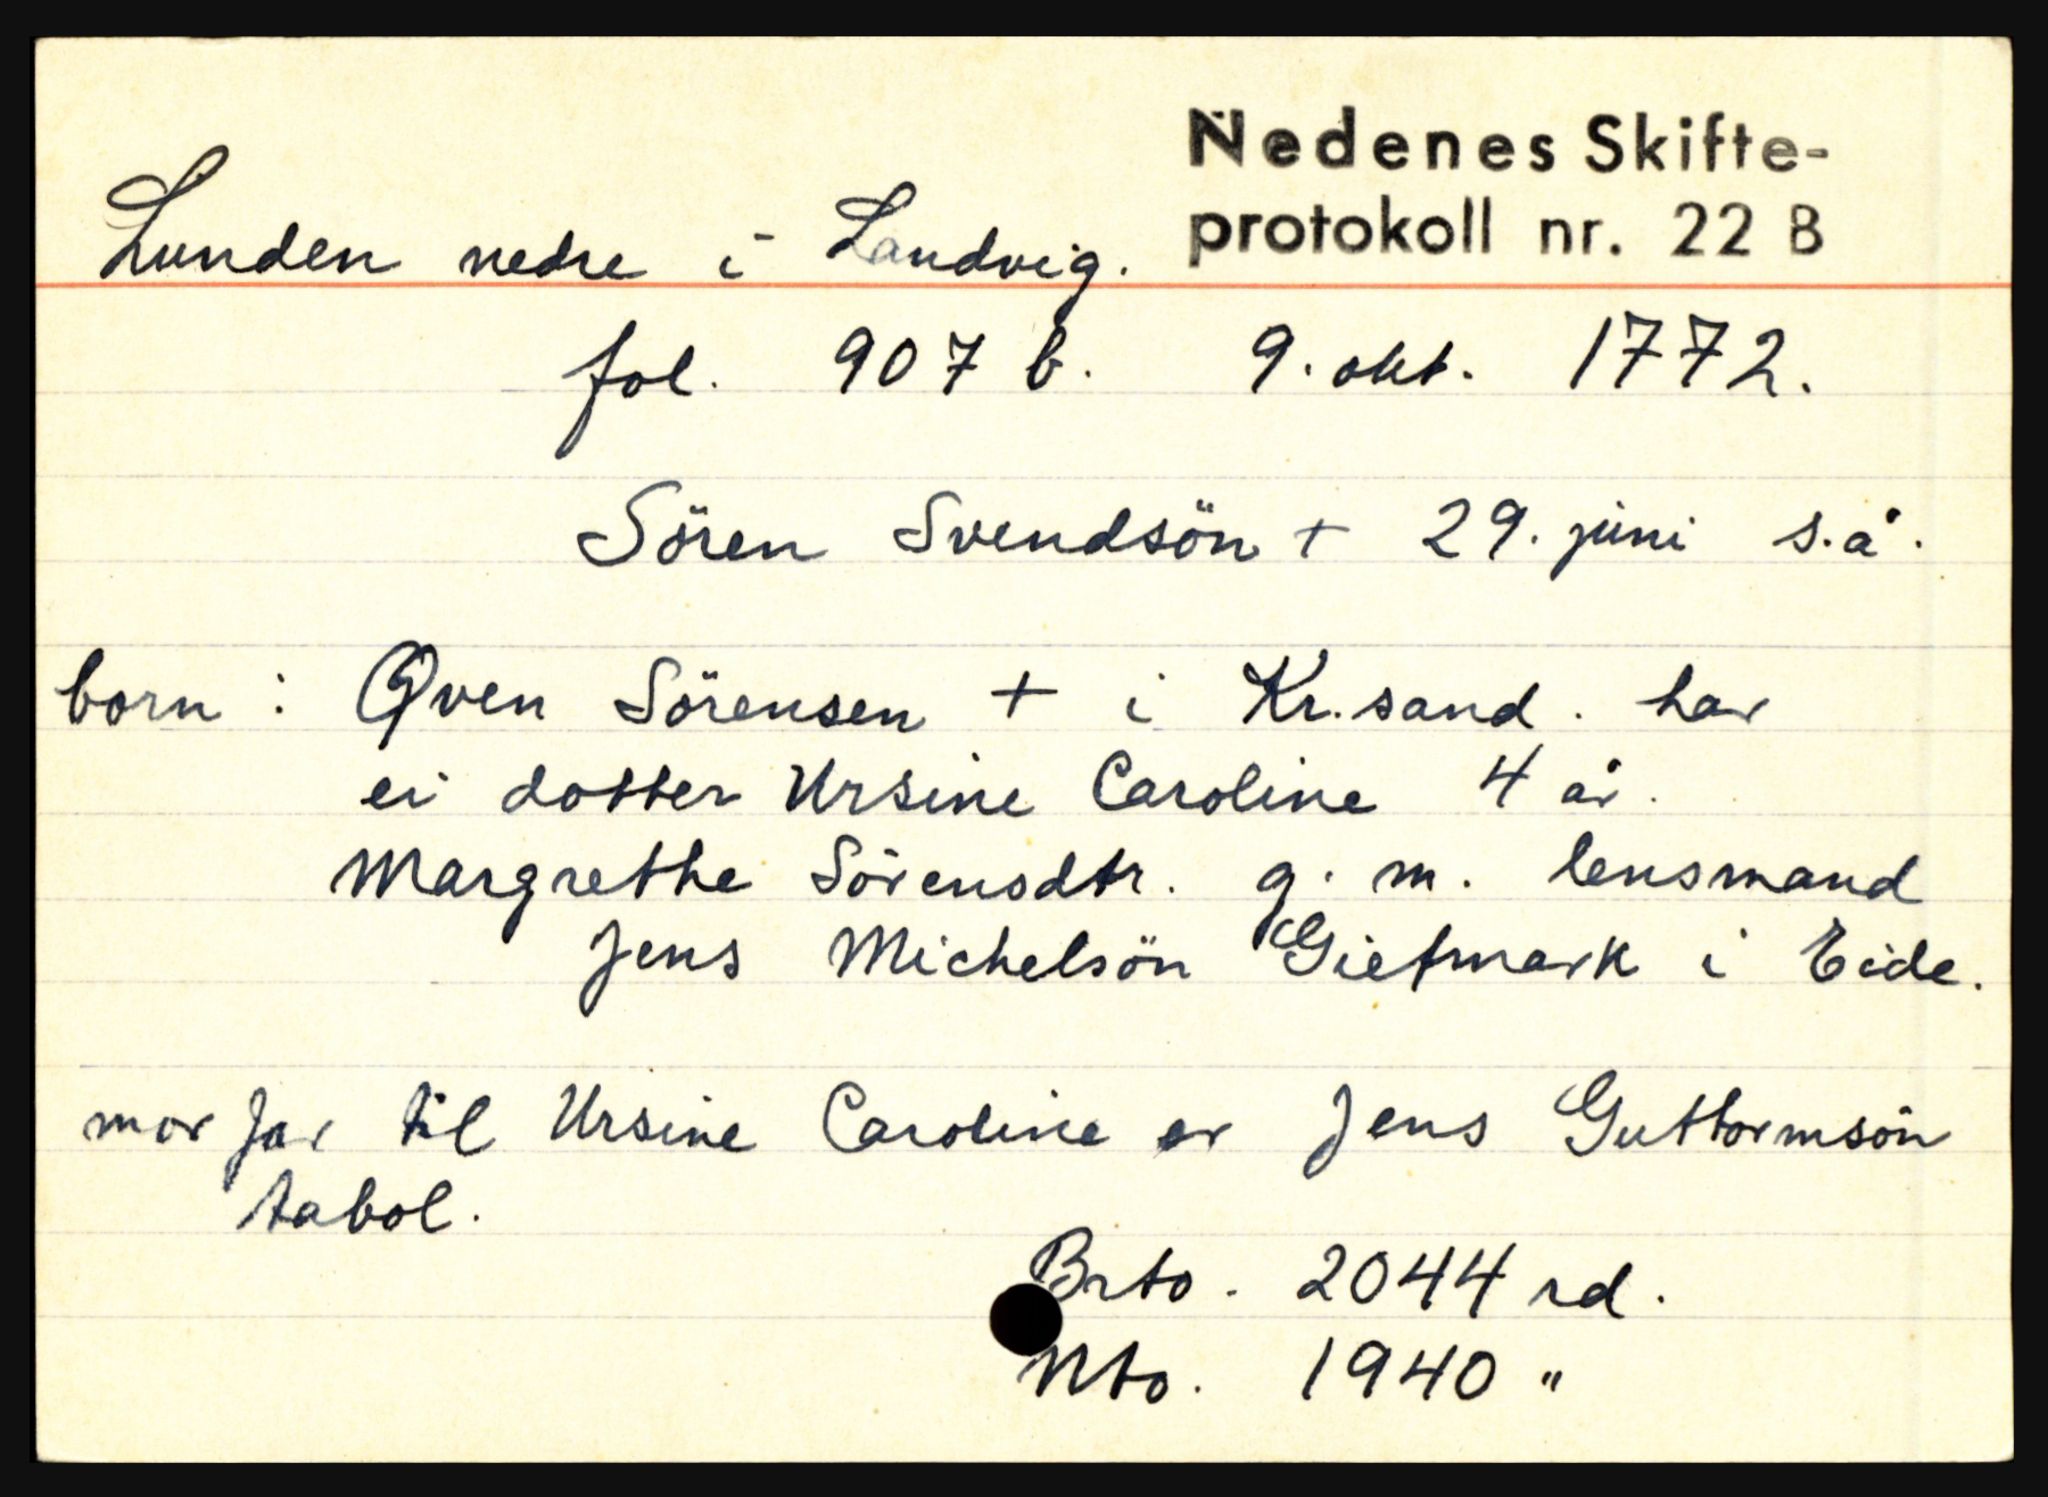 Nedenes Skifte-
protokoll nr. 22 B
Lunden nedre i Landvig.
fol. 907 b. 9. okt. 1772.
Sören Svendsön + 29. juni s.å.
born : Oven Sörensen + i Kr.sand. har
ei dotter Ursine Caroline 4 år.
Margrethe Sörensdtr. g. m. lensmand
Jens Michelsön Gietmark i Eide.
morfar til Ursine Caroline er Jens Guttormsön
tabol.
Brto. 2044 rd.
Nto. 1940 "